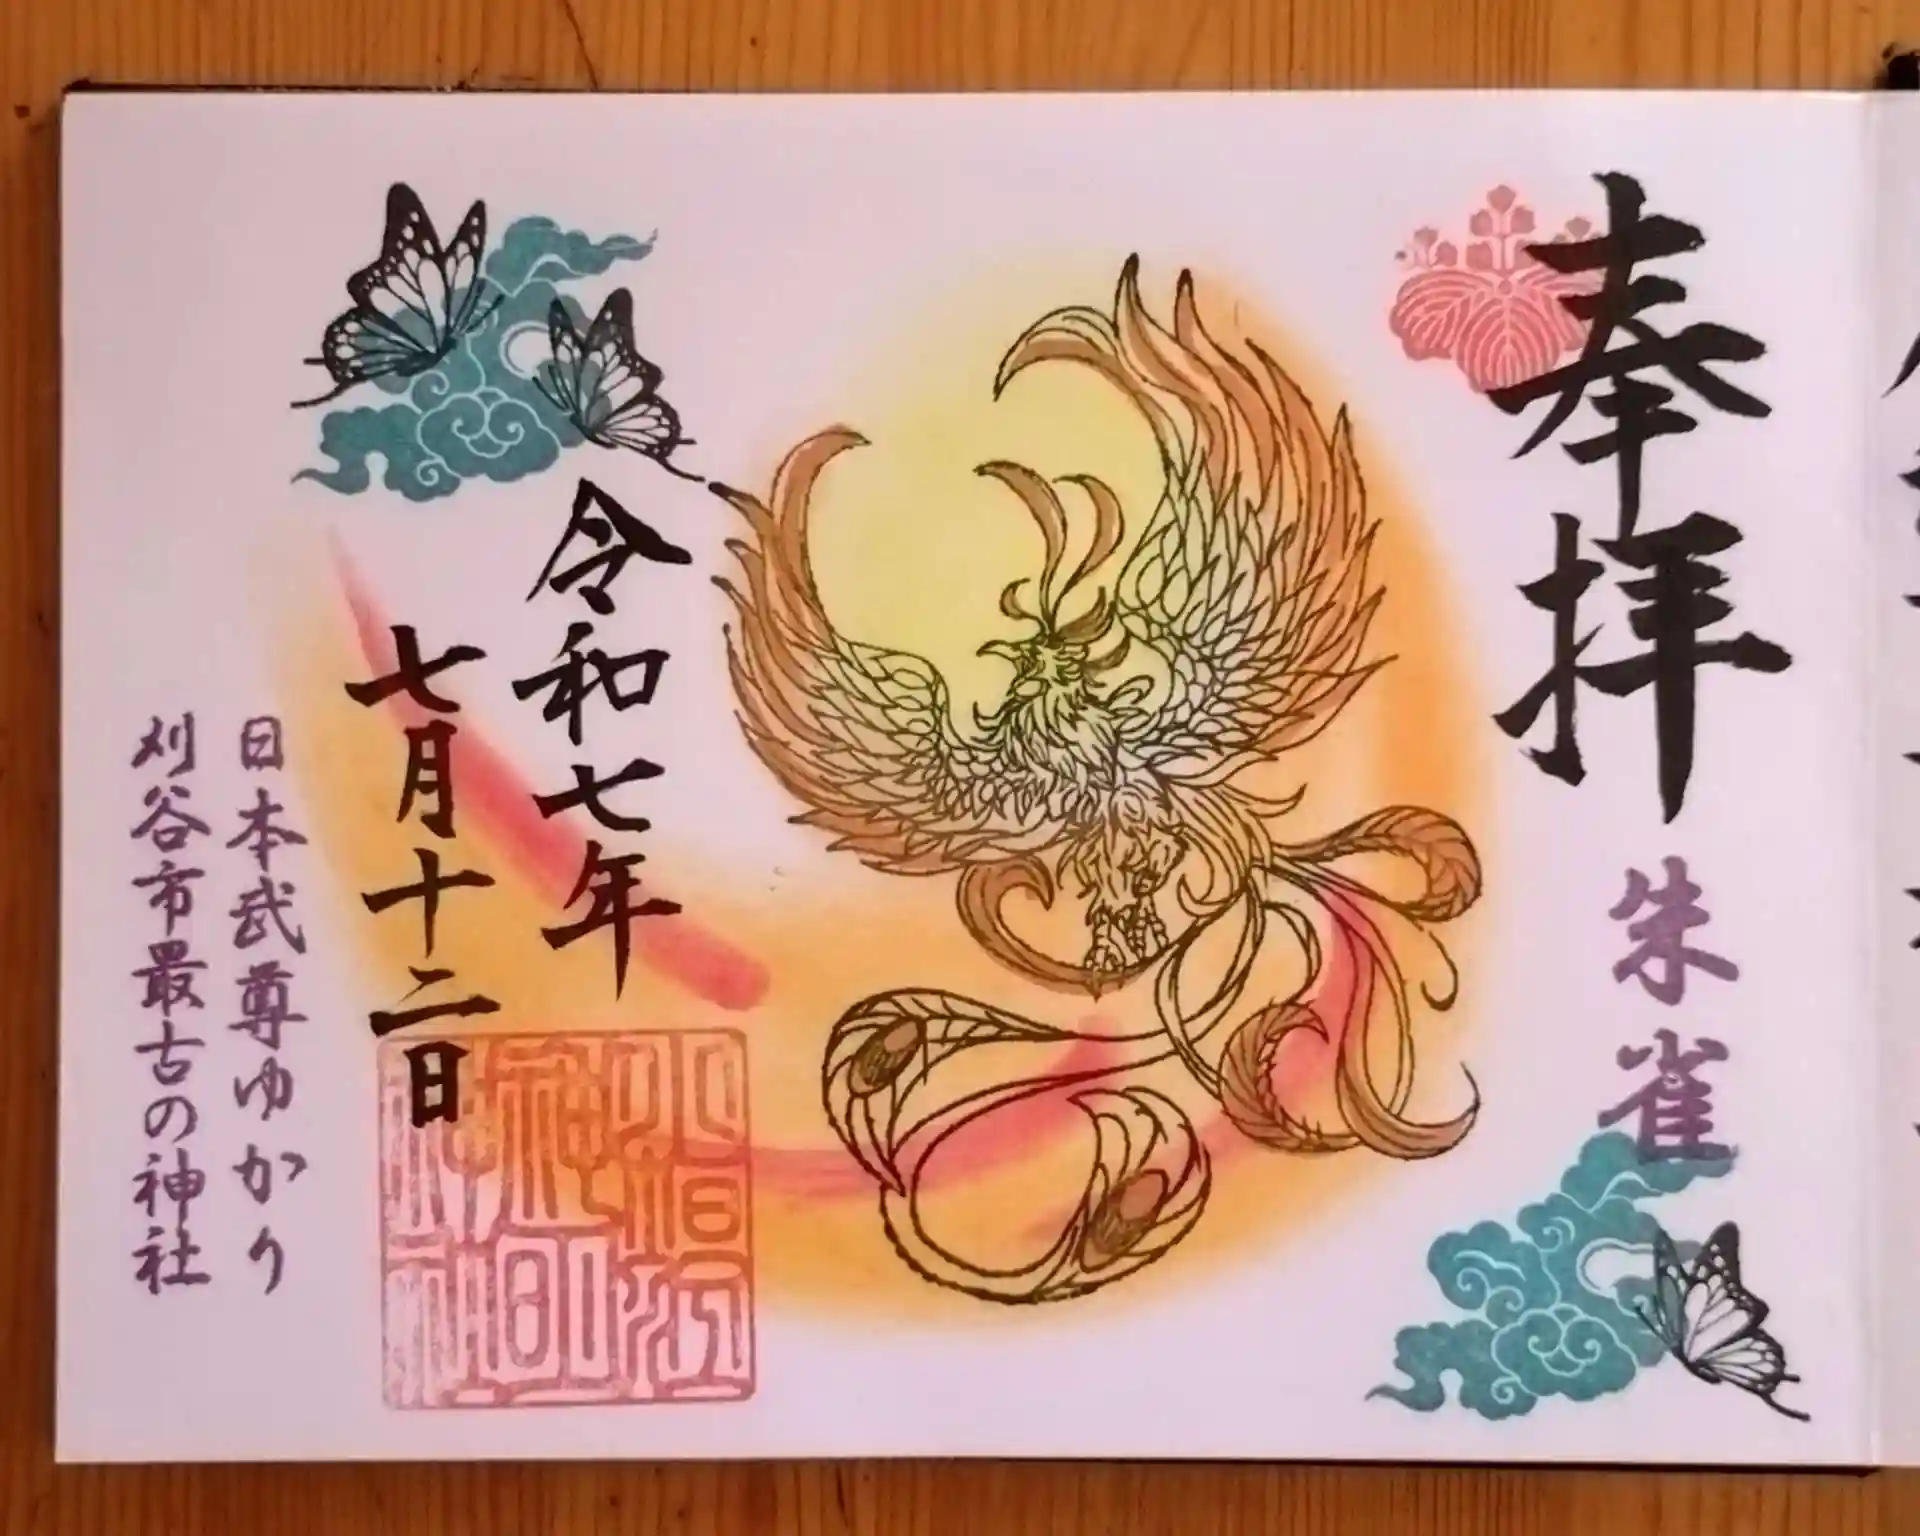 奉拝
朱雀
令和七年
七月十二日
日本武尊ゆかり
刈谷市最古の神社